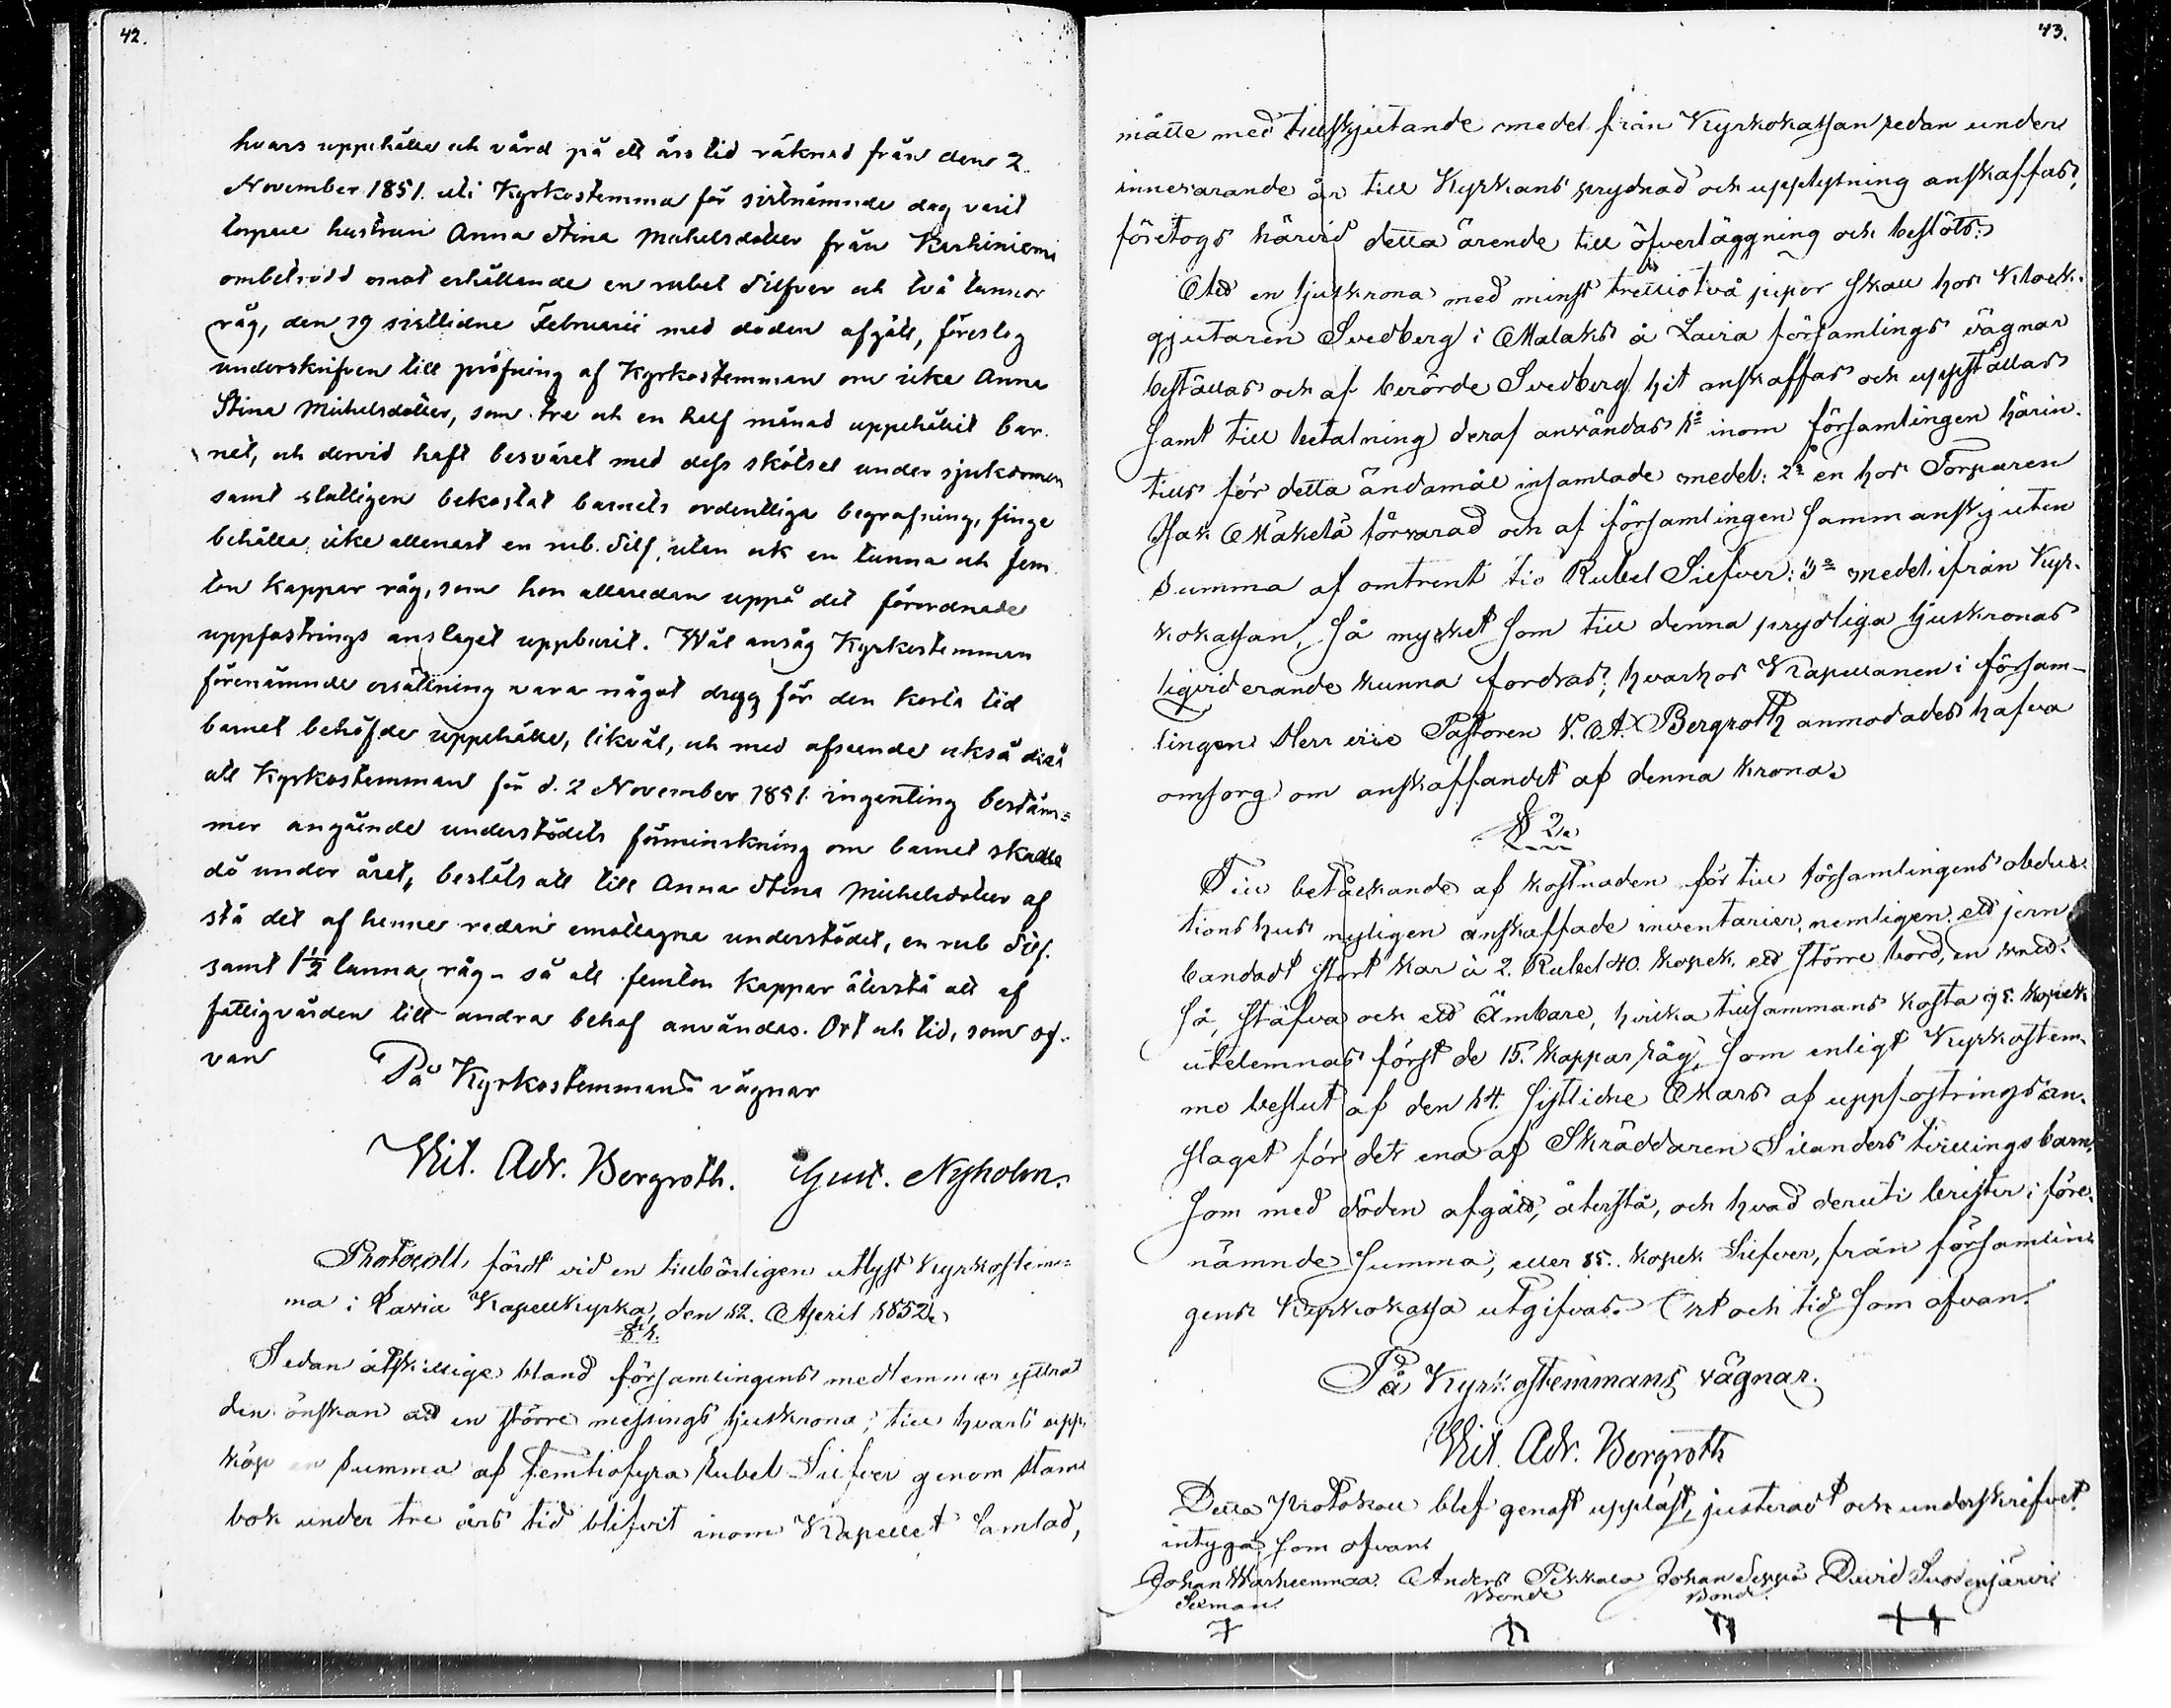 42.
hvars uppehälle och vård på ett års tid räknad från den 2.
November 1851. uti Kyrkostemma för sistnämnde dag varit
torpare hustrun Anna Stina Michelsdotter från Karhiniemi
ombetrodd emot erhållande en rubel Silfver och två tunnor
råg, den 19 sistlidne Februarii med döden afgått, föreslog
underskrifven till pröfning af Kyrkostemman om icke Anna
Stina Michelsdotter, som tre och en half månad uppehållit bar-
net, och dervid haft besväret med dess skötsel under sjukdomen
samt slutligen bekostat barnets ordentliga begrafning, finge
behålla icke allenast en rub. Silf. utan ock en tunna och fem
ton kappar råg, som hon allaredan uppå det förordnade
uppfostrings anslaget uppburit. Wäl ansåg Kyrkostemman
förenämnde ersättning vara något dryg för den korta tid
barnet behöfde uppehälle, likväl, och med afseende också derå
att Kyrkostemman för d. 2 November 1851. ingenting bestäm=
mer angående understödets förminskning om barnet skulle
dö under året, beslöts att till Anna Stina Michelsdotter af
stå det af henne redan emottagne understödet, en rub Silf.
samt 1 1/2 tunna råg - så att femton kappar återstå att af
fattigvården till andra behof användas. Ort och tid, som of-
van
På Kyrkostemmans vägnar
Vil. Adr. Bergroth. Gust. Nyholm.
Protocoll, fördt vid en tillbörligen utlyst Kyrkostem=
ma i Lavia Kapellkyrka, den 12. April 1852.
§ 1.
Sedan åtskillige bland församlingens medlemmar yttrat
den önskan att en större messings ljuskrona, till hvars upp
köp en summa af femtiofyra Rubel Silfver genom stam
bok under tre års tid blifvit inom Kapellet samlad,
43.
måtte med tillskjutande medel från Kyrkokassan redan under
innevarande år till Kyrkans prydnad och upplysning anskaffas,
företogs härvid detta ärende till öfverläggning och beslöts:
Att en ljuskrona med minst trettiotvå pipor skall hos Klock-
gjutaren Svedberg i Malaks å Lavia församlings vägnar
beställas och af berörde Svedberg hit anskaffas och uppställas
samt till betalning deraf användas 1o inom församlingen härin-
tills för detta ändamål insamlade medel: 2o en hos Torparen
Isak Mäkelä förvarad och af församlingen sammanskjuten
summa af omtrent tio Rubel Silfver: 3o medel ifrån Kyr-
kokassan, så mycket som till denna prydliga ljuskronas
liqviderande kunna fordras; hvarhos Kapellanen i försam-
lingen Herr vice Pastoren V. A. Bergroth anmodades hafva
omsorg om anskaffandet af denna krona.
§ 2.
Till betäckande af kostnaden för till församlingens obduc
tions hus nyligen anskaffade inventarier, nemligen ett jern
bandadt stort kar à 2. Rubel 40. kopek. ett större bord, en
så, stäfva och ett Ämbare, hvilka tillsammans kosta 95. kopek
utelemnas först de 15. kappar råg, som enligt Kyrkostem-
mo beslut af den 14. sistlidne Mars af uppfostringsan-
slaget för det ena af Skräddaren Silanders tvillingsbarn,
som med döden afgått, återstå, och hvad deruti brister i före-
nämnde summa, eller 85. kopek Silfver, från församlin
gens Kyrkokassa utgifvas. Ort och tid som ofvan.
På Kyrkostemmans vägnar.
Vil. Adr. Bergroth
Detta Protokoll blef genast uppläst, justeradt och underskrifvet
intyga, som ofvan
Johan Warheenmaa. Anders Pekkala Johan Seppä David Suodenjärvi
Sexman. Bonde Bonde.